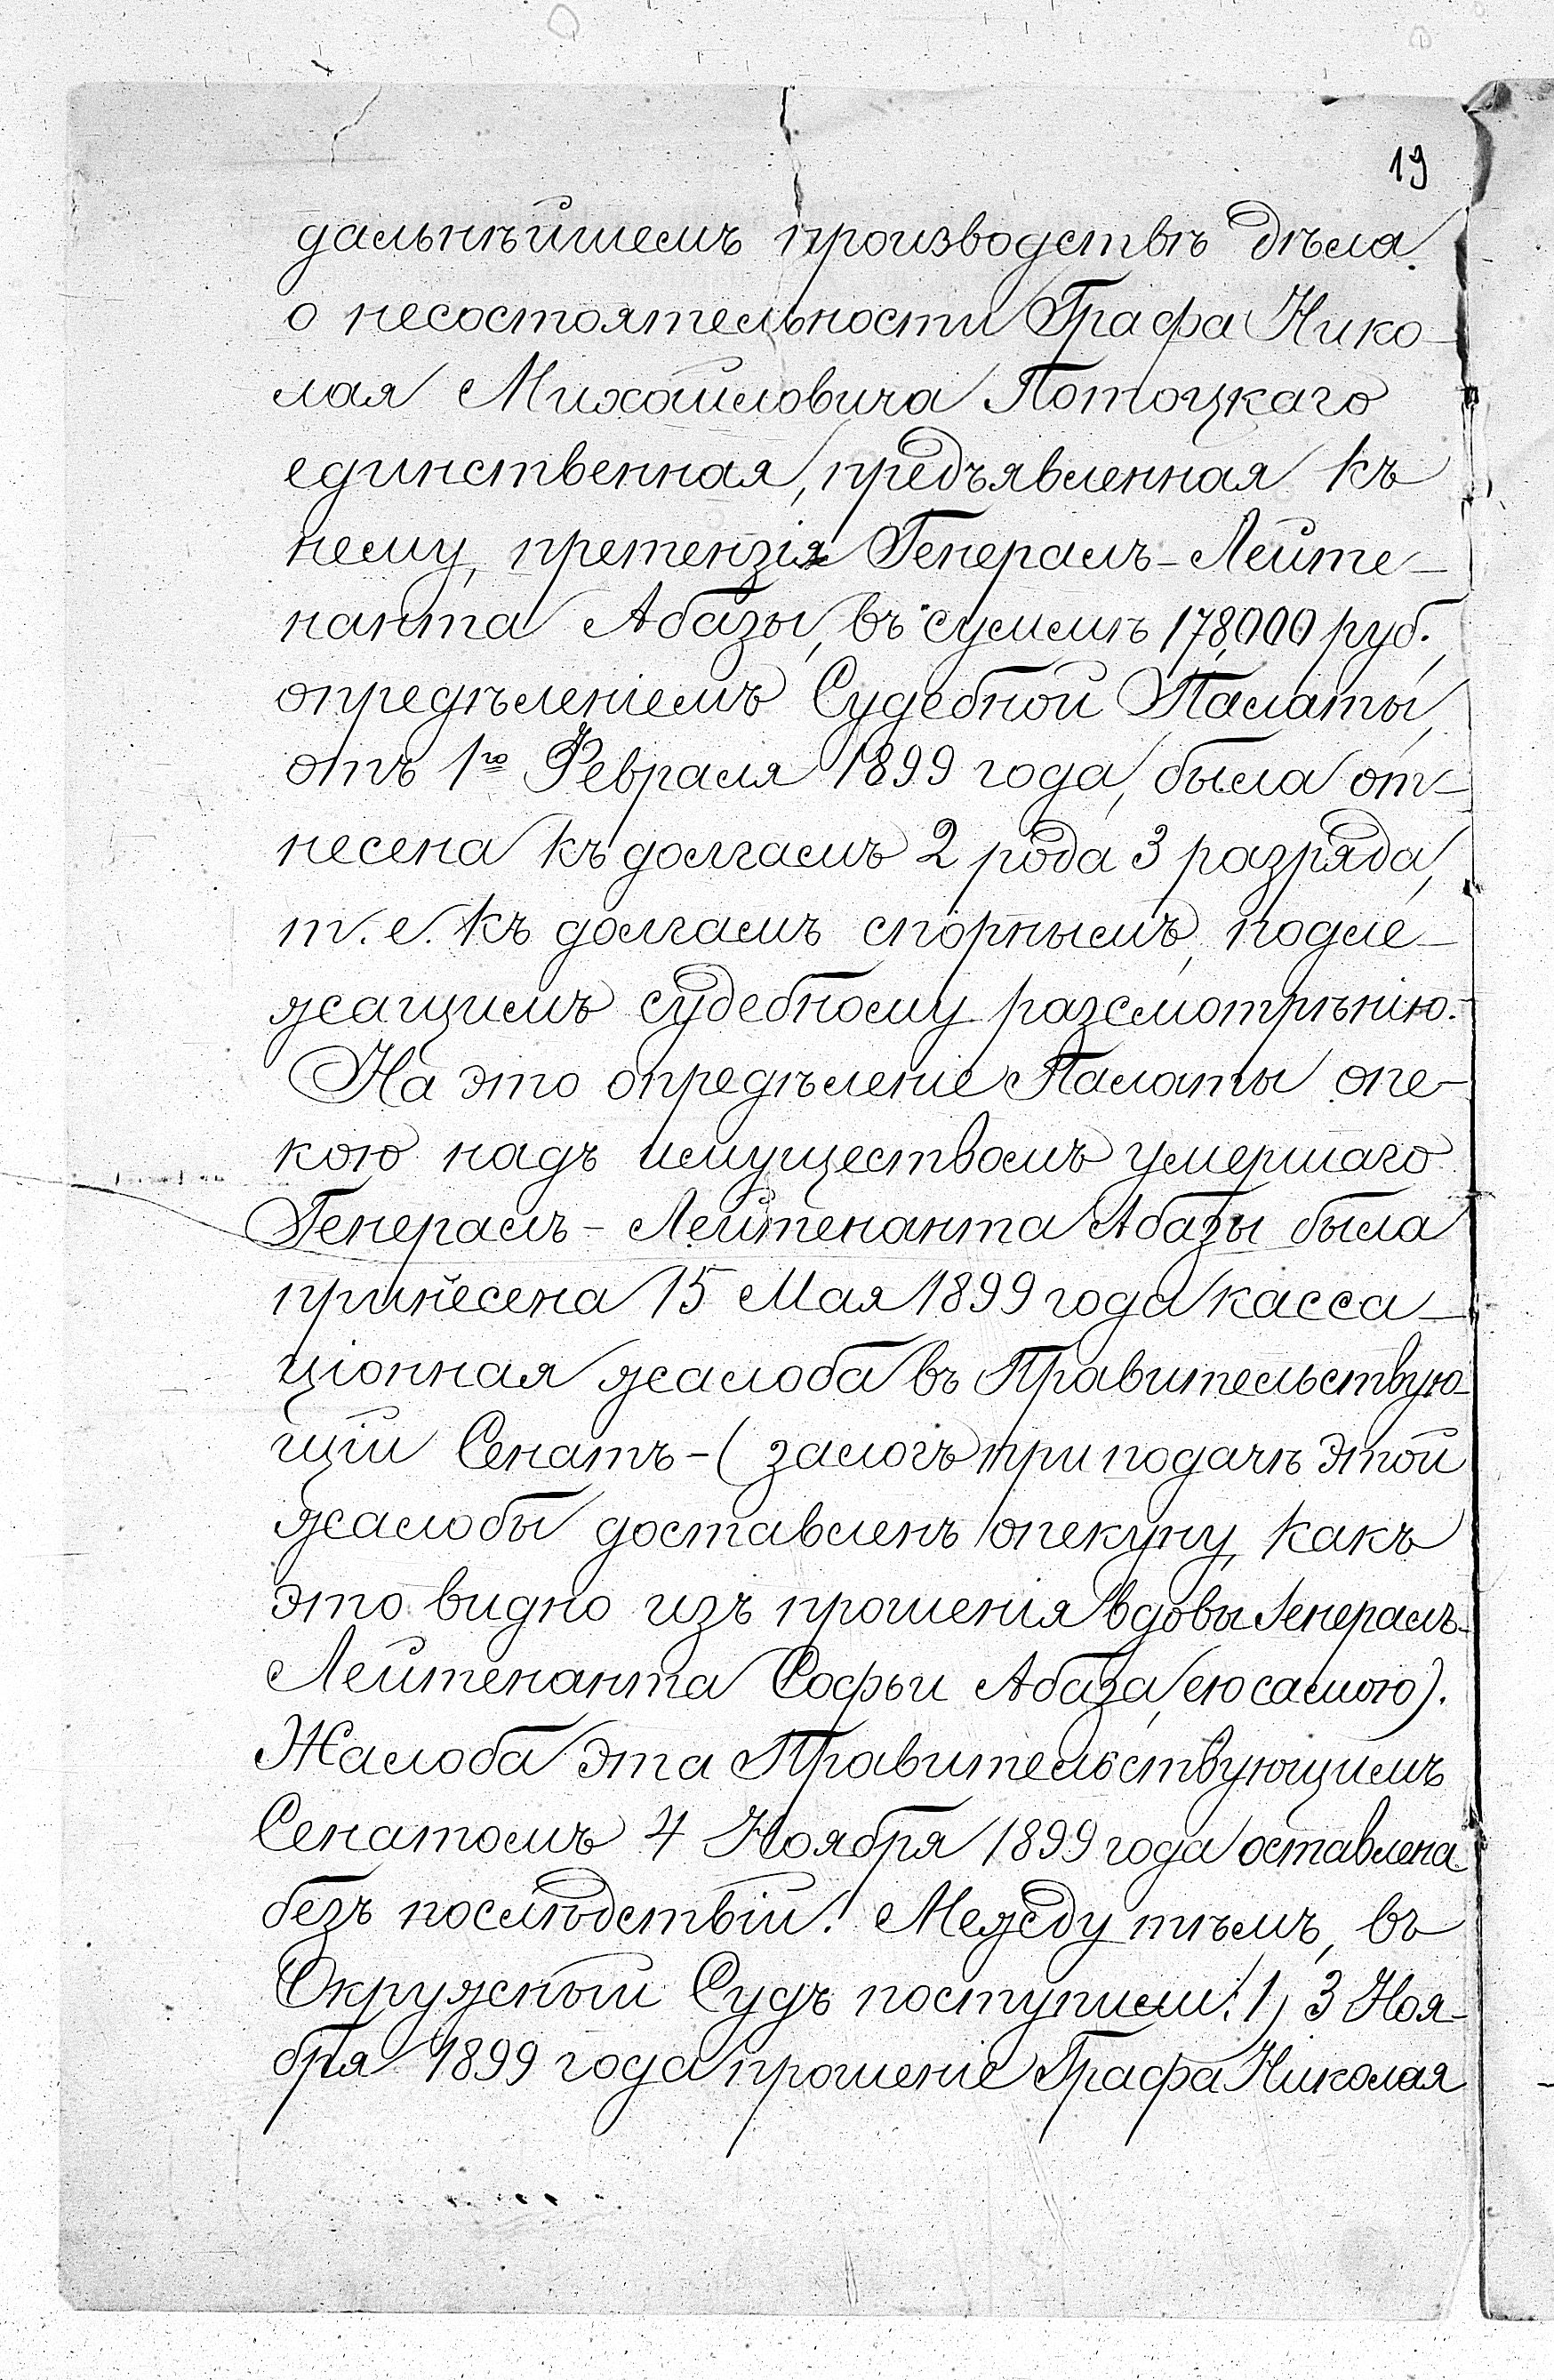 19
дальнѣйшемъ производствѣ дѣла
о несостоятельности Графа Нико-
лая Михайловича Потоцкаго
единственная, предъявленная къ
нему, претензія Генералъ-Лейте-
нанта Абазы, въ суммѣ 178,000 руб.,
опредѣленіемъ Судебной Палаты,
отъ 1го Февраля 1899 года, была от-
несена къ долгамъ 2 рода 3 разряда,
т. е. къ долгамъ спорнымъ, подле-
жащимъ судебному разсмотрѣнію.
На это опредѣленіе Палаты опе-
кою надъ имуществомъ умершаго
Генералъ-Лейтенанта Абазы была
принесена 15 Мая 1899 года касса-
ціонная жалоба въ Правительствую-
щій Сенатъ-(залогъ при подачѣ этой
жалобы доставленъ опекуну, какъ
это видно изъ прошенія вдовы Генералъ-
Лейтенанта Софьи Абаза, ею самою).
Жалоба эта Правительствующимъ
Сенатомъ 4 Ноября 1899 года оставлена
безъ послѣдствій. Между тѣмъ, въ
Окружный Судъ поступили: 1) 3 Ноя-
бря 1899 года прошеніе Графа Николая